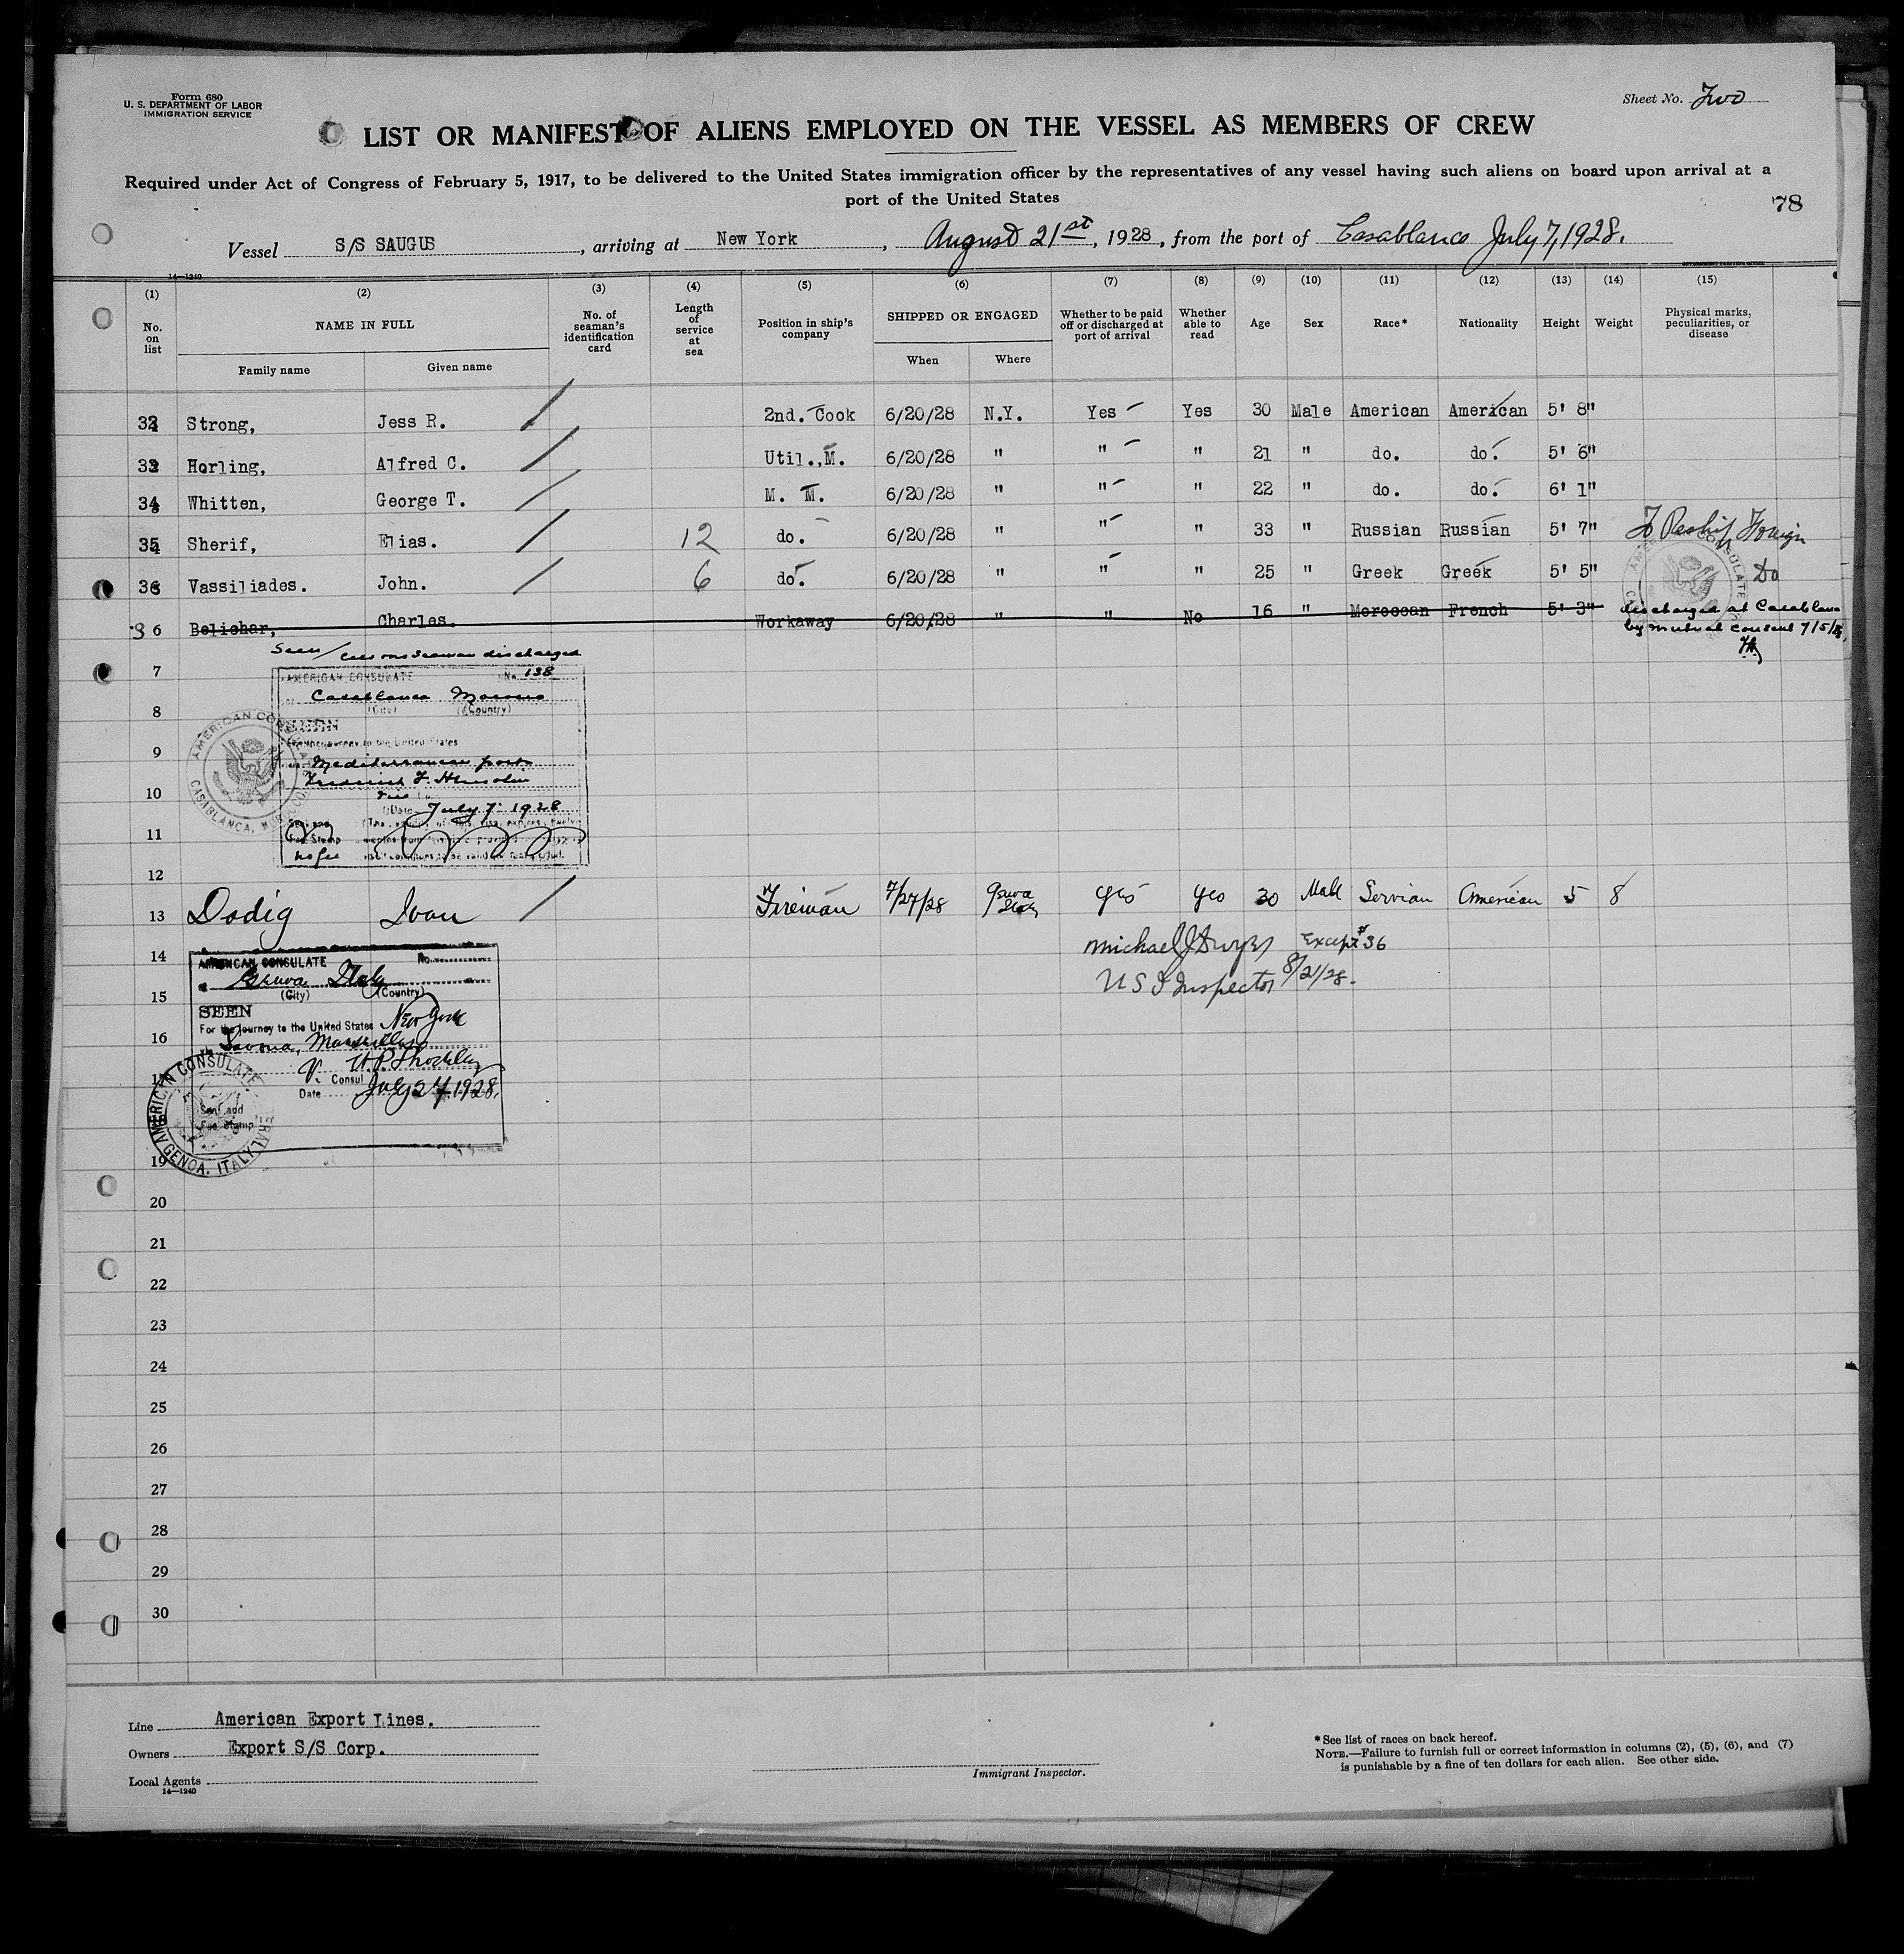 Form 680
U. S. DEPARTMENT OF LABOR
IMMIGRATION SERVICE
Sheet No. Two
LIST OR MANIFEST OF ALIENS EMPLOYED ON THE VESSEL AS MEMBERS OF CREW
Required under Act of Congress of February 5, 1917, to be delivered to the United States immigration officer by the representatives of any vessel having such aliens on board upon arrival at a
port of the United States
78
Vessel S/S SAUGUS, arriving at New York, August 21st, 1928, from the port of Casablanca July 7, 1928.
14—1240
(1) (2) (3) (4) (5) (6) (7) (8) (9) (10) (11) (12) (13) (14) (15)
No. on list NAME IN FULL No. of seaman's identification card Length of service at sea Position in ship's company SHIPPED OR ENGAGED Whether to be paid off or discharged at port of arrival Whether able to read Age Sex Race* Nationality Height Weight Physical marks, peculiarities, or disease
Family name Given name When Where
Strong, Jess R. 2nd. Cook 6/20/28 N.Y. Yes Yes 30 Male American American 5' 8"
Horling, Alfred C. Util.,M. 6/20/28 " " " 21 " do. do. 5' 6"
34 Whitten, George T. M. M. 6/20/28 " " " 22 " do. do. 6' 1"
35 Sherif, Elias. 12 do. 6/20/28 " " " 33 " Russian Russian 5' 7" To Reship Foreign
36 Vassiliades. John. 6 do. 6/20/28 " " " 25 " Greek Greek 5' 5" Do
36 Belichar, Charles. Workaway 6/20/28 " " No 16 " Moroccan French 5' 3" discharged at Casablanca
by mutual consent 7/5/28
Seen / one seaman discharged
7
AMERICAN CONSULATE No. 138
Casablanca Morocco
(City) (Country)
8
SEEN
For the journey to the United States
9
Mediterranean ports
10
Date July 7 1928
11
no fee
AMERICAN CONSULATE
CASABLANCA, MOROCCO
12
13 Dodig Ivan Fireman 7/27/28 Genoa Italy Yes Yes 30 Male Servian American 5 8
Michael J Dwyer Except #36
US I Inspector 8/21/28.
14
AMERICAN CONSULATE No.
Genoa Italy
(City) (Country)
15
SEEN
For the journey to the United States New York
16
Savona, Marseilles
V. Consul
17
Date July 27, 1928.
Seal and
Fee Stamp
AMERICAN CONSULATE GENERAL
GENOA, ITALY
19
20
21
22
23
24
25
26
27
28
29
30
Line American Export Lines.
Owners Export S/S Corp.
Local Agents
14—1240
Immigrant Inspector.
*See list of races on back hereof.
NOTE.—Failure to furnish full or correct information in columns (2), (5), (6), and (7)
is punishable by a fine of ten dollars for each alien. See other side.